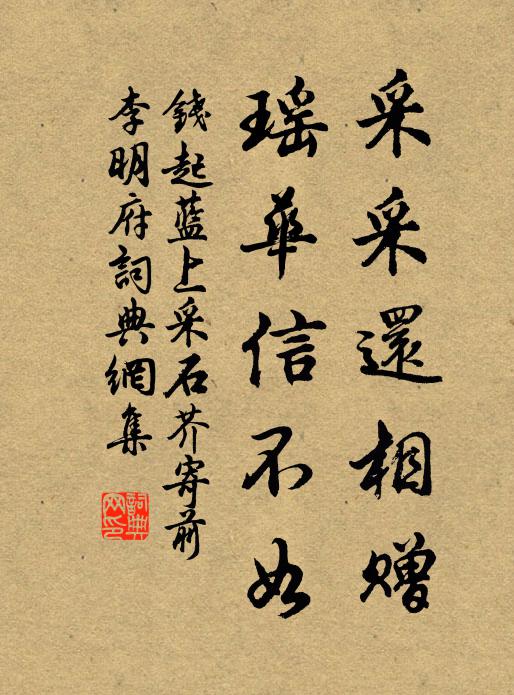 采采還相贈
瑶華信不如
錢起藍上采石芥寄前
李明府詞典網集
詞典
网印